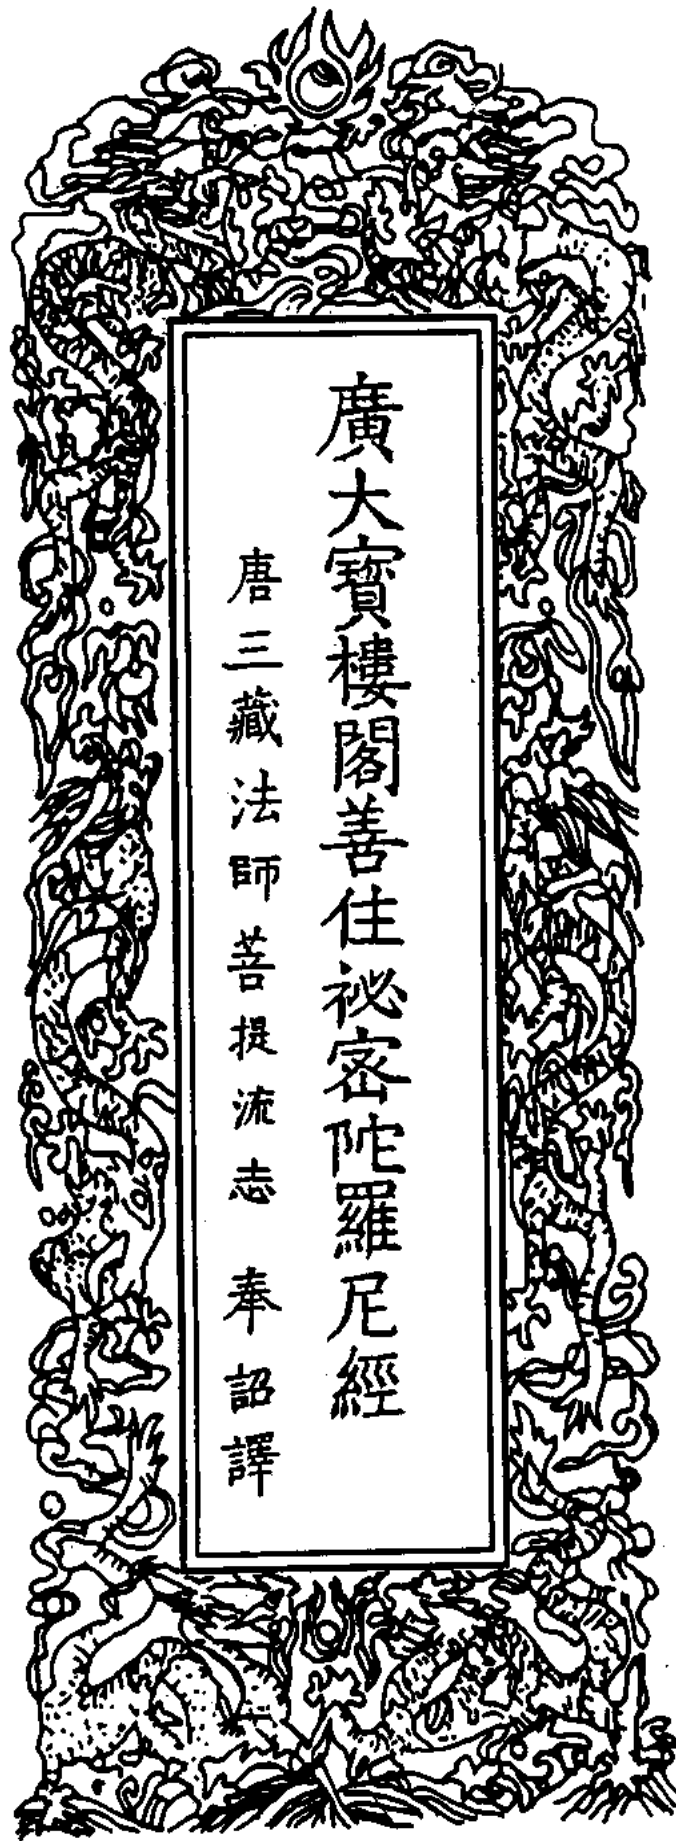 廣大寶樓閣善住祕密陀羅尼經
唐三藏法師菩提流志 奉詔譯